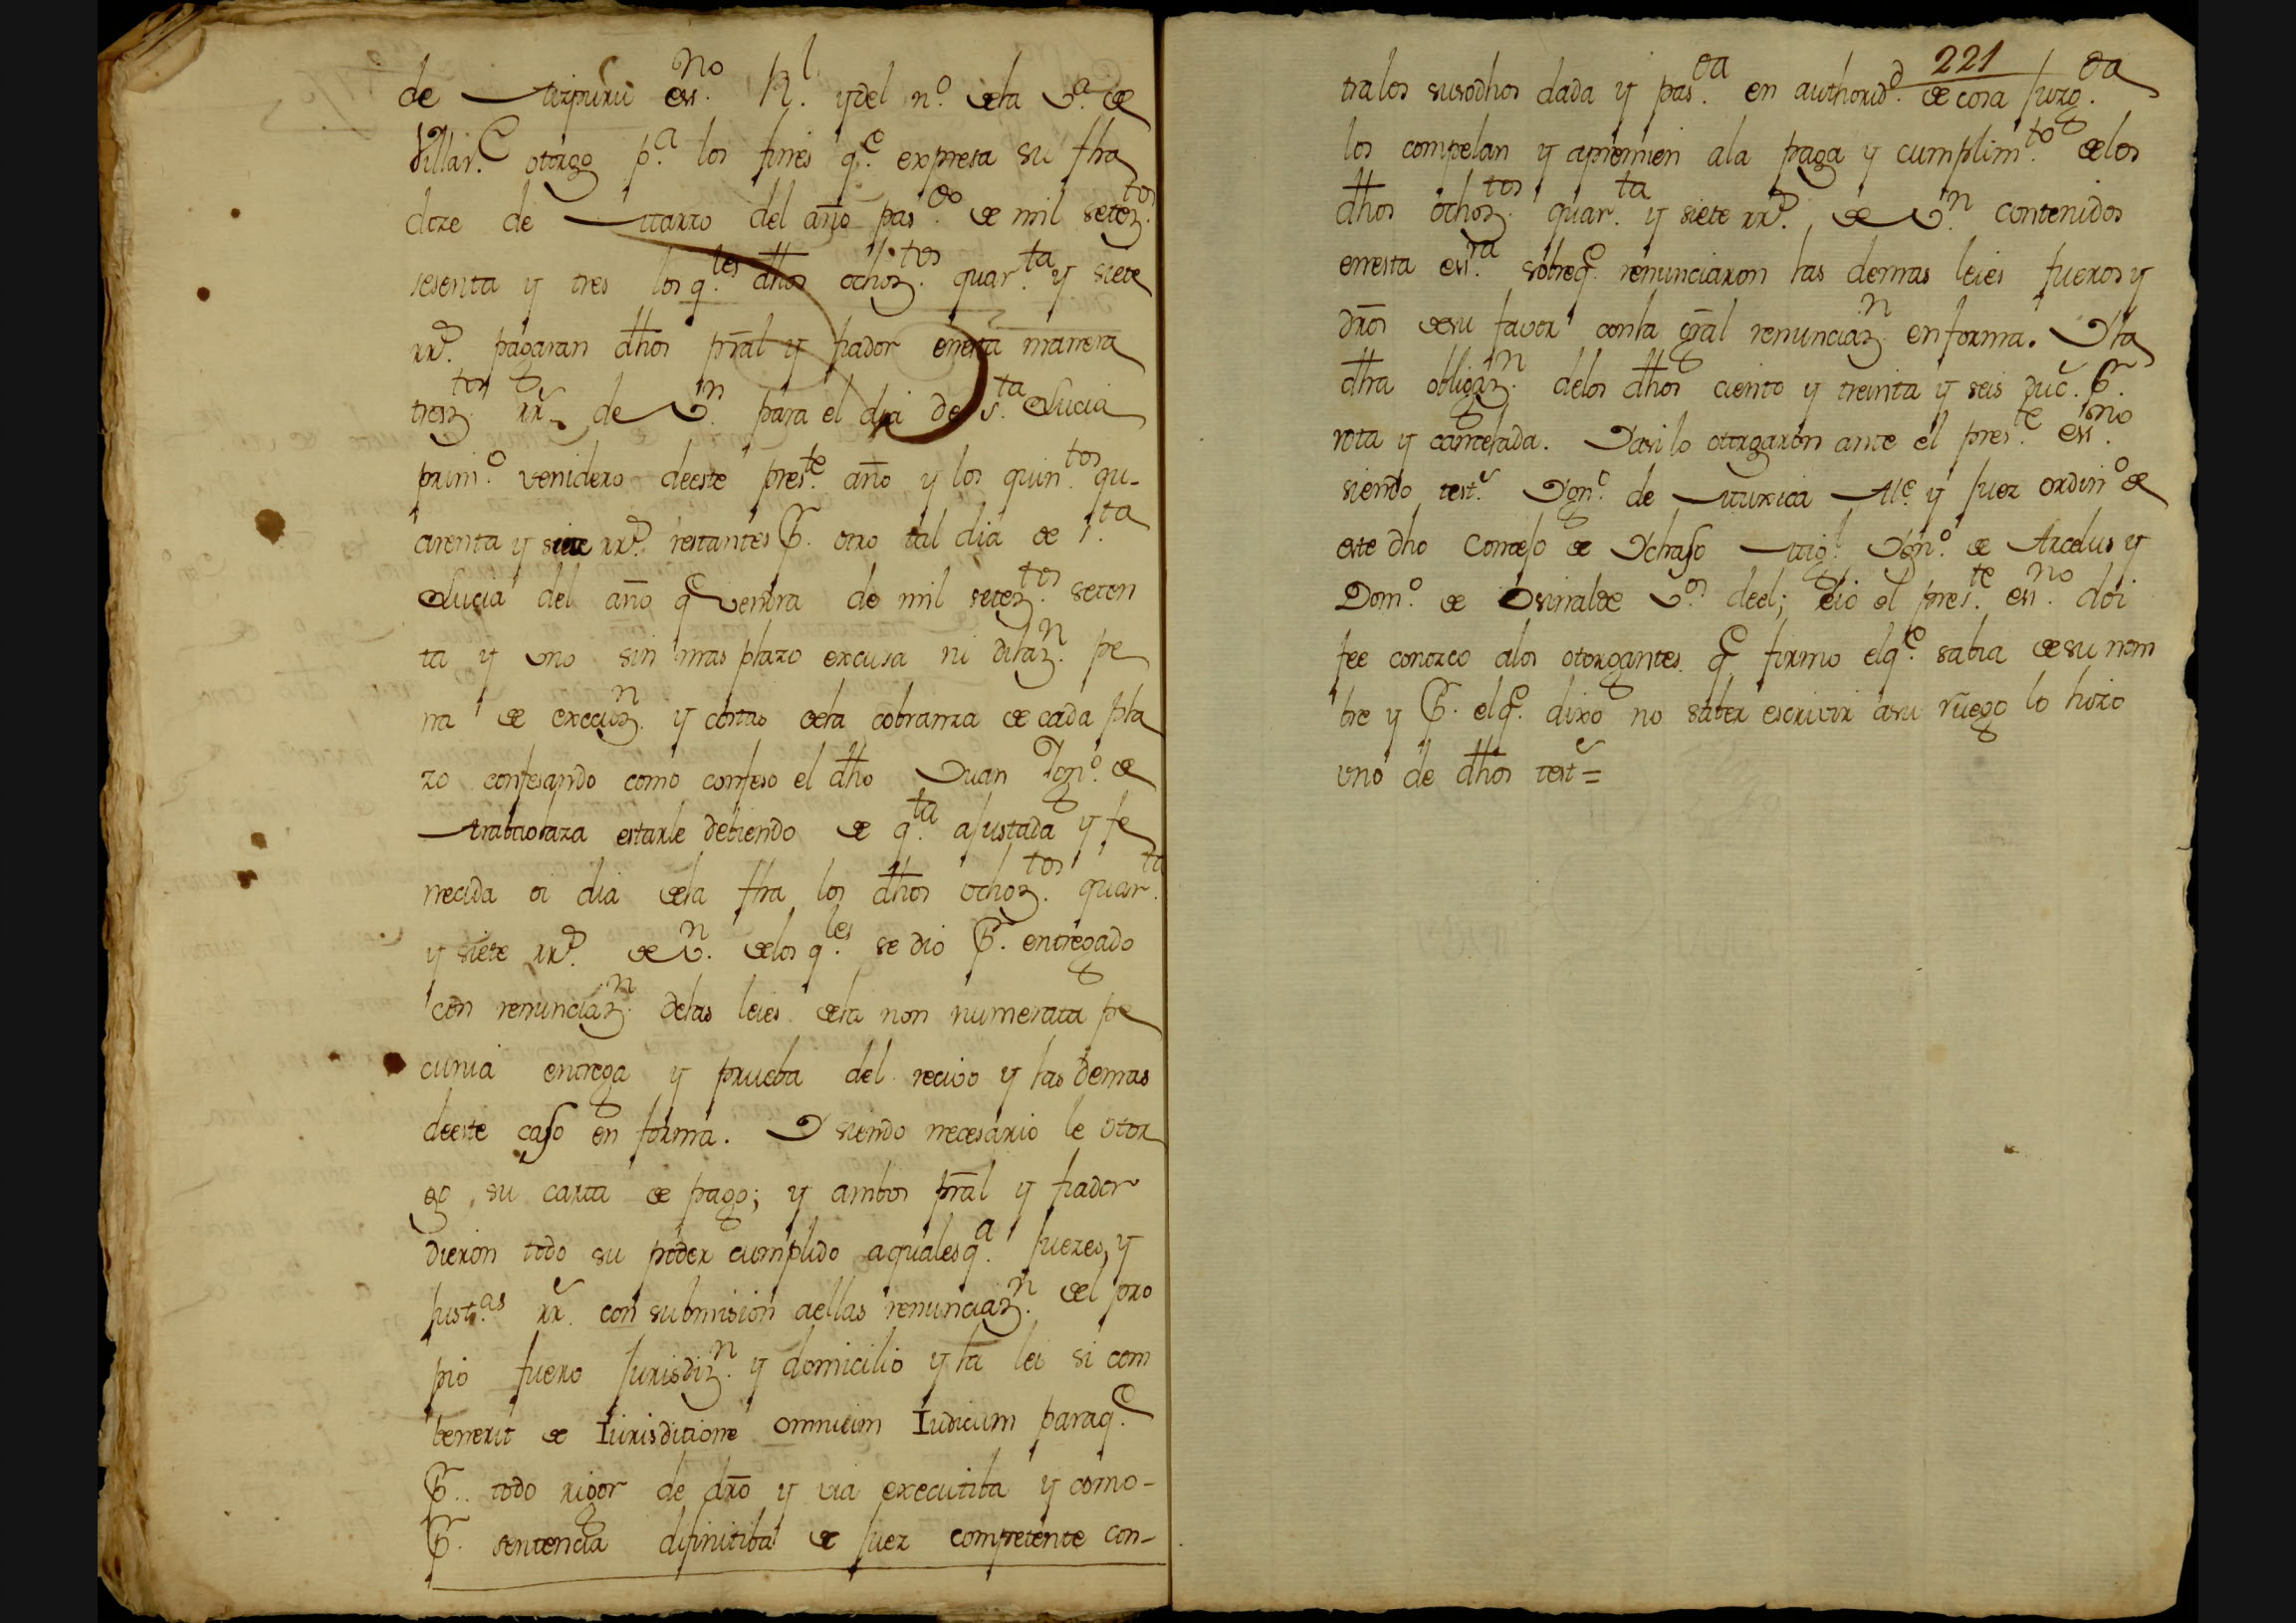 de Aizpuru esn.no Rl. y del n.o dela V.a de
Villar.l otorgo p.a los fines q.e expresa su fha
doze de Marzo del año pas.do de mil setez.tos
sesenta y tres los q.les dhos ochoz.tos quar.ta y siete
rr.s pagaran dhos pral y fiador enesta manera
tresz.tos rr.s de V.n para el dia de s.ta Lucia
prim.o venidero deeste pres.te año y los quin.tos qu-
arenta y siete rr.s restantes P.r otro tal dia de s.ta
Lucia del año q.e vendra de mil setez.tos seten
ta y uno sin mas plazo excusa ni dilaz.n pe
na de execuz.n y costas dela cobranza de cada pla
zo confesando como confeso el dho Juan Ign.o de
estarle debiendo de q.ta ajustada y fe
necida oi dia dela fha los dhos ochoz.tos quar.ta
y siete rr.s de V.n delos q.les se dio P.r entregado
con renunciaz.n delas leies dela non numerata pe
cunia entrega y prueba del recivo y las demas
deeste caso en forma. Y siendo necesario le otor
go su carta de pago; y ambos pral y fiador
dieron todo su poder cumplido a qualesq.a Juezes, y
Just.as rr.s con submision aellas renunciaz.n del pro
pio fuero Jurisdiz.n y domicilio y la lei si com
benerit de Iurisditione omnium Iudicum paraq.e
P.r todo rigor de dro y via executiba y como-
P.r sentencia difinitiba de Juez competente con-
221
tralos susodhos dada y pas.da en authorid.d de cosa Juzg.da
los compelan y apremien ala paga y cumplim.to delos
dhos ochoz.tos quar.ta y siete rr.s de V.n contenidos
enesta esn.ra sobreq.e renunciaron las demas leies fueros y
dros desu favor conla gral renunciaz.n enforma. Y la
dha obligaz.n delos dhos ciento y treinta y seis duc.s P.r
rota y cancelada. Y asi lo otorgaron ante el pres.te esn.no
siendo test.s Ign.o de Muxica Al.e y Juez ordin.o de
este dho Concejo de Ychaso Mig.l Ign.o de Arcelus y
Dom.o de V.os deel; eio el pres.te esn.no doi
fee conozco alos otorgantes q.e firmo elq.e sabia de su nom
bre y P.r elq.e dixo no saber escrivir asu ruego lo hizo
uno de dhos test.s =